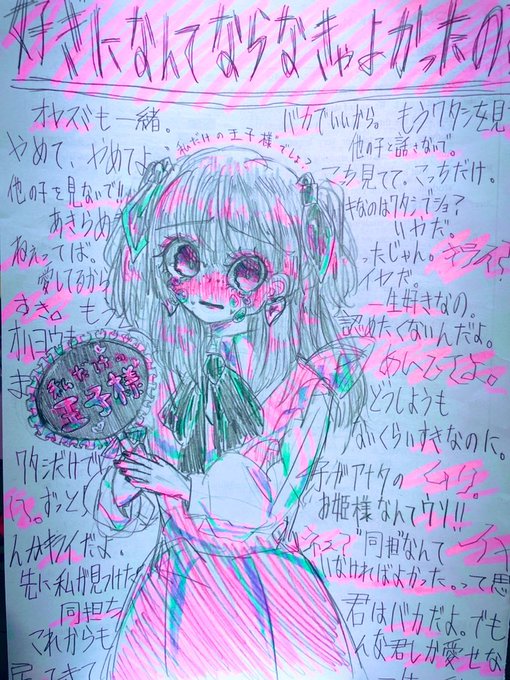 好きになんてならなきゃよかったの?
オレズミも一緒。
やめて、やめてよ。
他の子を見ないで!!
あきらめ
ねぇってば。
愛してるから
すき。もう
"私だけの王子様"でしょ?
バカでいいから。もうワタシを見
他の子と話さないで。
こっち見てて。こっちだけ。
きなのはワタシでしょ?
いやだ。
ったじゃん。キライ?
イヤだ。
一生好きなの。
認めたくないんだよ。
私だけの
王子様
どうしようも
ないくらいすきなのに。
ワタシだけで
子がアナタの
お姫様なんてウソ!!
ずっと
んかキライだよ。
"同担"なんて
いなければよかった。って思
先に私が見つけた
同担も
これからも
君はバカだよ。でも
んな君しか愛せな